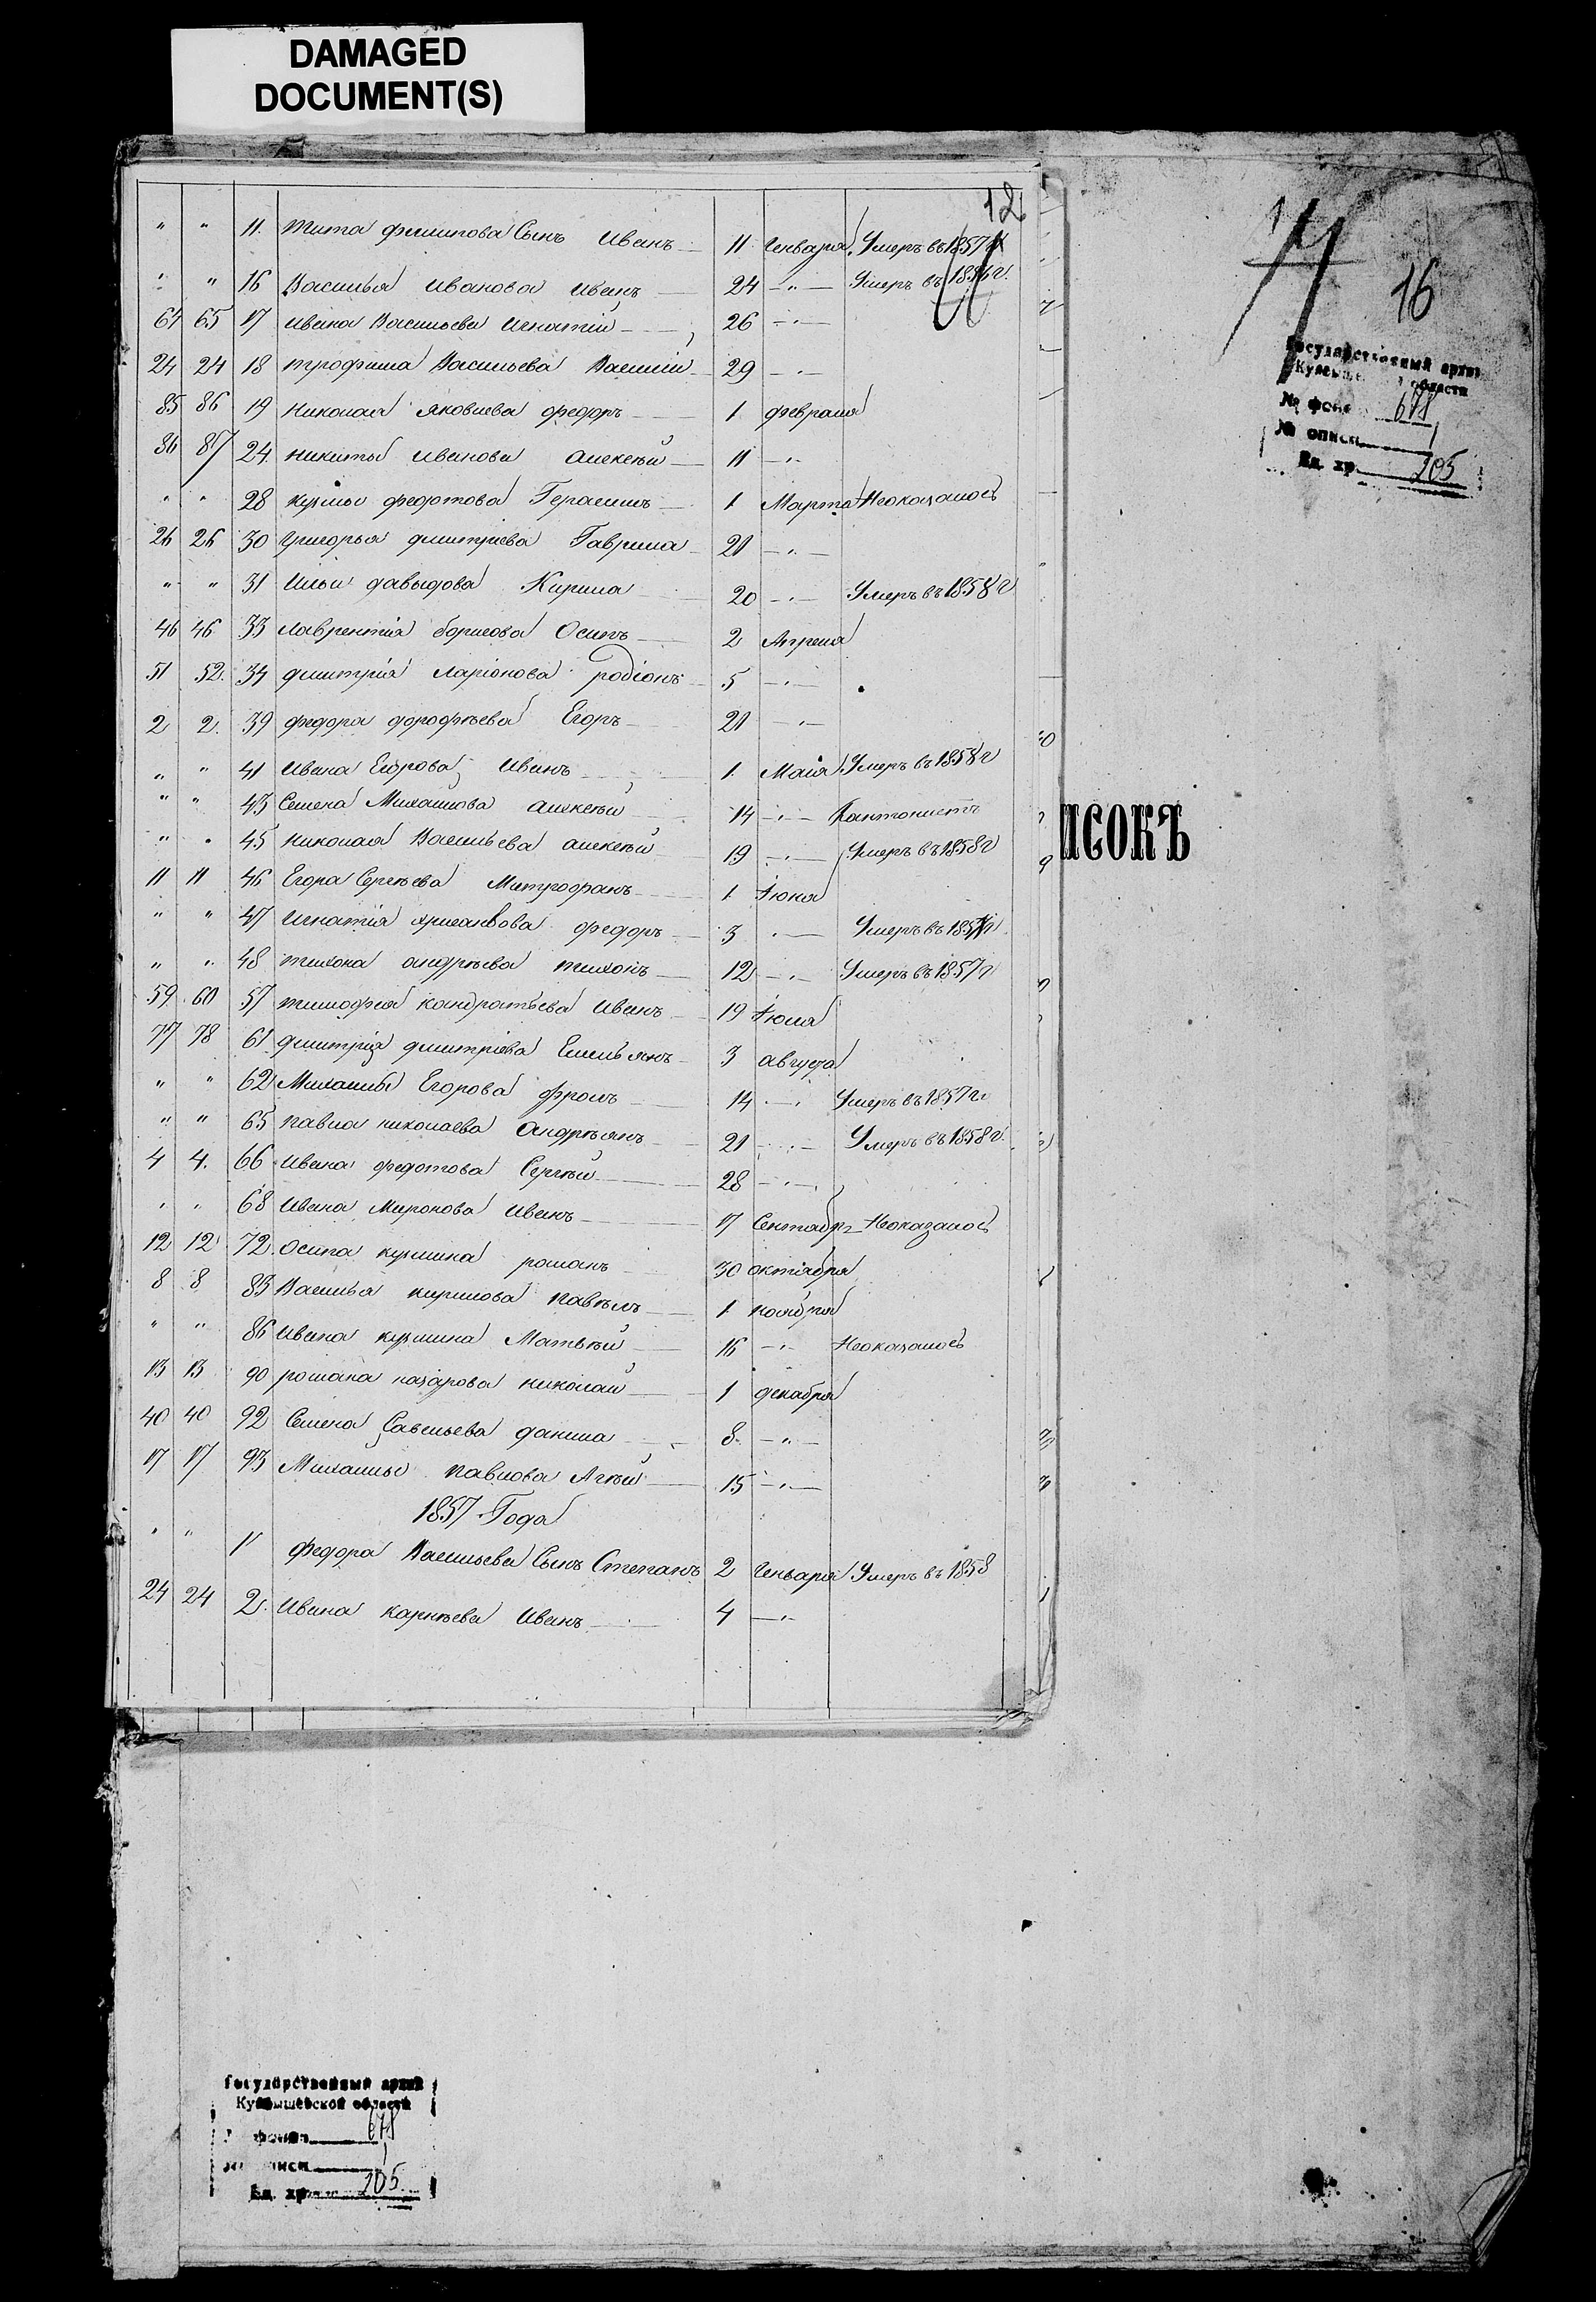 DAMAGED
DOCUMENT(S)
12
" " 11. Тита филипова Сынъ Иванъ 11 Генваря Умеръ въ 1857 г
" " 16 Василья Иванова Иванъ 24 " Умеръ въ 1856 г.
64 65 17 Ивана Васильева Игнатій 26 "
24 24 18 трофима Васильева Василій 29 "
85 86 19 Николая Яковлева федоръ 1 февраля
86 87 24. Никиты Иванова алексѣй 11 "
" " 28 кузмы федотова Герасимъ 1 Марта Неоказалось
26 26 30 Григорья дмитріева Гаврила 21 "
" " 31 Ильи давыдова Кирила 20 " Умеръ въ 1858 г
46 46 33 Лаврентія борисова Осипъ 2 Апреля
51 52. 34 дмитрія ларіонова родіонъ 5 "
2 2. 39 федора дорофѣева Егоръ 21 "
" " 41 Ивана Егорова Иванъ 1. Маія Умеръ въ 1858 г
" " 43 Семена Михайлова алексѣй 14 " Кантонистъ
" " 45 Николая Васильева алексѣй 19 " Умеръ въ 1858 г
11 11 46 Егора Сергѣева Митрофанъ 1. Іюня
" " 47 Игнатія федоръ 3 " Умеръ въ
" " 48 тихона андрѣева тихонъ 12 " Умеръ въ 1857 г
59 60 57 тимофея кандратьева Иванъ 19 Іюля
77 78 61 дмитрія дмитріева Емельянъ 3 августа
" " 62 Михаилы Егорова фролъ 14 " Умеръ въ 1857 г.
" " 65 павла николаева Андрѣянъ 21 " Умеръ въ 1858 г.
4 4. 66 Ивана федотова Сергѣй 28 "
" " 68 Ивана Миронова Иванъ 17 Сентябр. Неоказалось
12 12 72. Осипа кузмина романъ 30 октября
8 8 83 Василья кирилова павѣлъ 1. ноября
" " 86 Ивана кузмина Матвѣй 16 " Неоказалось
13 13 90 романа назарова николай 1 декабря
40 40 92 Семена Савельева данила 8. "
17 17 93 Михаилы павлова Агѣй 15 "
1857 Года
" " 1 Федора Васильева Сынъ Степанъ 2 Генваря Умеръ въ 1858
24 24 2. Ивана карнѣева Иванъ 4 "
16
Государственный архив
Куйбышевской области
№ фонда 671
№ описи 1
Ед. хр. 205
ИСОКЪ
Государственный архив
Куйбышевской области
№ фонда 671
№ описи 1
Ед. хр. 205